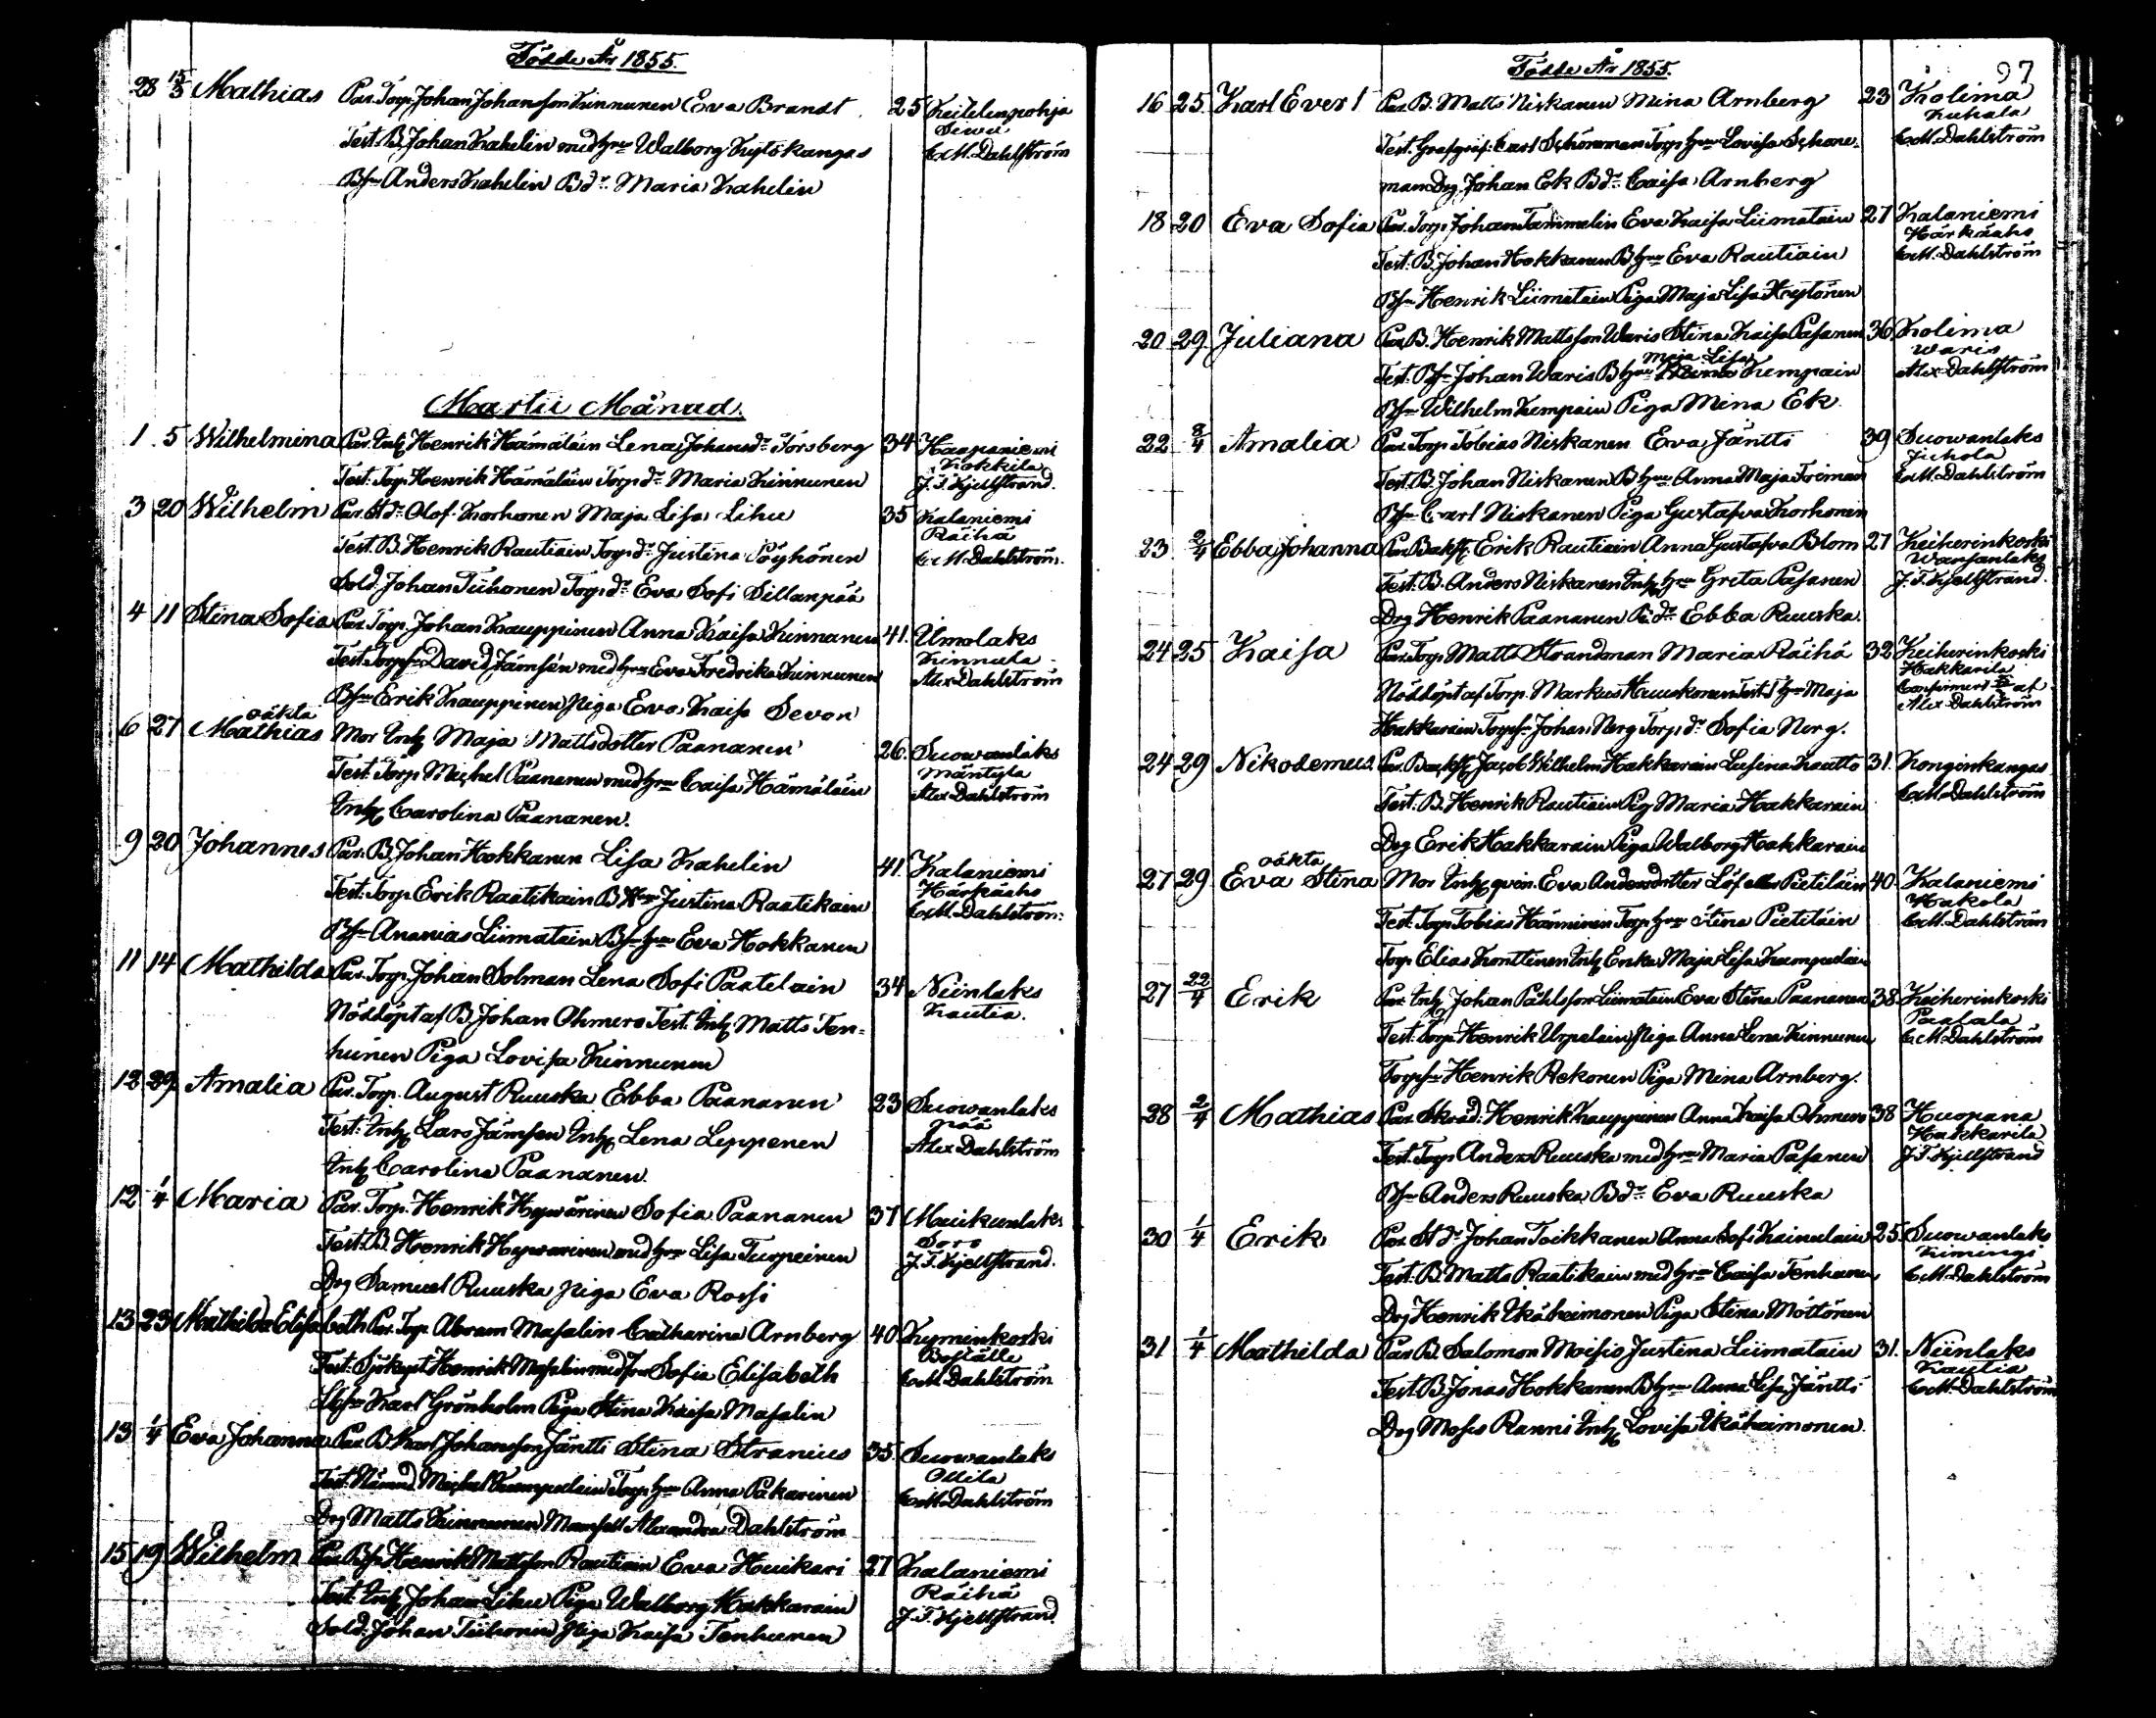 Födde År 1855.
28 15/3 Mathias Par. Torp. Johan Johansson Kinnunen Eva Brandt 25 Keitelenpohja
Test. B. Johan Kahelin med hru Walborg Kytökangas
C.M. Dahlström
Bsn Anders Kahelin Bdr Maria Kahelin
Martii Månad.
1 5 Wilhelmina Par. Inh. Henrik Hämäläin Lena Johansdr Forsberg 34 Haapaniemi
Kokkila
Test. Torp. Henrik Hämäläin Torp.dr Maria Kinnunen J.F. Kjellstrand.
3 20 Wilhelm Par. Olof Korhonen Maja Lisa Lihu 35 Kalaniemi
Räihä
Test. B. Henrik Rautiain Torp.dr Justina Pöyhönen C.M. Dahlström.
Sold. Johan Tiihonen Torp.dr Eva Sofi Sillanpää
4 11 Stina Sofia Par. Torp. Johan Kauppinen Anna Kaisa Kinnunen 41. Umolaks
Kinnula
Test. Torpsn David Jämsén med hru Eva Fredrika Kinnunen Alex Dahlström
Bsn Erik Kauppinen Piga Eva Kaisa Sevon
oäkta
6 27 Mathias Mor Inh. Maja Mattsdotter Paananen 26. Suowanlaks
Mäntylä
Test. Torp. Michel Paananen med hru Caisa Hämäläin Alex Dahlström
Inh. Carolina Paananen.
9 20 Johannes Par. B. Johan Hokkanen Lisa Kahelin 41. Kalaniemi
Härkäaho
Test. Torp. Erik Raatikain B. Hru Justina Raatikain C.M. Dahlström:
Bsn Ananias Liimatain Bsn hru Eva Hokkanen
11 14 Mathilda Par. Torp. Johan Solman Lena Sofi Paatelain 34 Niinlaks
Kautia.
Nöddöpt af B. Johan Ohmero Test. Inh. Matts Ten=
hunen Piga Lovisa Kinnunen
12 29 Amalia Par. Torp. August Ruuska Ebba Paananen 23 Suowanlaks
pää
Test. Inh. Lars Jämsen Inh. Lena Leppenen Alex Dahlström
Inh. Carolina Paananen.
12 1/4 Maria Par. Torp. Henrik Hyvärinen Sofia Paananen 37 Muikunlaks
Soro
Test. B. Henrik Hyvarinen med hru Lisa Turpeinen J.F. Kjellstrand.
Drg Samuel Ruuska Piga Eva Rossi
13 23 Mathilda Elisabeth Par. Torp. Abram Masalin Catharina Arnberg 40. Kyminkoski
Boställe
Test. Sjökapt Henrik Masalin med fru Sofia Elisabeth C.M. Dahlström
Karl Grönholm Piga Stina Kaisa Masalin
13 1/4 Eva Johanna Par. B. Karl Johansson Jäntti Stina Stranius 35. Suowanlaks
Ollila
Test. Nämnd. Michel Kumpulain Torp. hru Anna Pakarinen C.M. Dahlström
Drg Matts Kinnunen Mamsell Alexandra Dahlström
15 19 Wilhelm Par. Bsn Henrik Mattsson Rautiain Eva Huikari 27 Kalaniemi
Räihä
Test. Inh. Johan Lihu Piga Walborg Hakkarain J.F. Kjellstrand.
Sold. Johan Tiihonen Piga Kaisa Tenhunen
Födde År 1855.
97
16 25. Karl Evert Par. B. Matts Niskanen Mina Arnberg 23 Kolima
Kuhala
Test. Carl Schöneman Torp. hru Lovisa Schöne- C.M. Dahlström
man Drg. Johan Ek Bdr Caisa Arnberg
18 20 Eva Sofia Par. Torp. Johan Tammelin Eva Kaisa Liimatain 27 Kalaniemi
Härkäaho
Test. B. Johan Hokkanen B hru Eva Rautiain C.M. Dahlström
Bsn Henrik Liimatain Piga Maja Lisa Heytönen
20 29. Juliana Par. B. Henrik Mattsson Waris Stina Kaisa Pasanen 36. Kolima
Waris
Maja Lisa
Test. Bsn Johan Waris B hru Kempain Alex Dahlström
Bsn Wilhelm Kempain Piga Mina Ek.
22 8/4 Amalia Par. Torp. Tobias Niskanen Eva Jäntti 39 Suowanlaks
Test. B. Johan Niskanen B hru Anna Maja Friman C.M. Dahlström
Bsn Carl Niskanen Piga Gustafva Korhonen
23. 2/4 Ebba Johanna Par. Erik Rautiain Anna Gustafva Blom 27 Keiherinkoski
Test. B. Anders Niskanen Inh. hru Greta Pasanen J.F. Kjellstrand.
Drg Henrik Paananen Bdr Ebba Ruuska
24 25 Kaisa Par. Torp. Matts Strandman Maria Räihä 32 Keiherinkoski
Hakkarila
Nöddöpt af Torp. Markus Huuskonen Test. T hru Maja Confirmert af
Alex Dahlström
Hakkarain Torpsn Johan Norg Torp.dr Sofia Norg.
24 29 Nikodemus. Par. Jacob Wilhelm Hakkarain Lusina Kautto 31. Konginkangas
Test. B. Henrik Rautiain Pig Maria Hakkarain C.M. Dahlström
Drg Erik Hakkarain Piga Walborg Hakkarain
oäkta
27 29 Eva Stina Mor Inh. qvin. Eva Andersdotter Löf eller Pietiläin 40. Kalaniemi
Hakola
Test. Torp. Tobias Hänninen Torp. hru Stina Pietiläin C.M. Dahlström
Torp. Elias Konttinen Inh. Enka Maja Lisa Kumpulain
27 22/4 Erik Par. Inh. Johan Påhlsson Liimatain Eva Stina Paananen 38. Keiherinkoski
Paasala
Test. Torp. Henrik Urpelain Piga Anna Lena Kinnunen C.M. Dahlström
Torpsn Henrik Rekonen Piga Mina Arnberg.
28 2/4 Mathias Par. Skräd. Henrik Kauppinen Anna Kaisa Ohmero 38 Huopana
Hakkarila
Test. Torp. Anders Ruuska med hru Maria Pasanen J.F. Kjellstrand
Bsn Anders Ruuska Bdr Eva Ruuska
30 1/4 Erik Par. Johan Toikkanen Anna Sofi Kainulain 25. Suowanlaks
Kimingi
Test. B. Matts Raatikain med hru Caisa Tenhunen C.M. Dahlström
Drg Henrik Ikäheimonen Piga Stina Möttönen
31 1/4 Mathilda Par. B. Salomon Moisio Justina Liimatain 31. Niinlaks
Kautia
Test. B. Jonas Hokkanen B hru Anna Lisa Jäntti C.M. Dahlström
Drg Moses Ranni Inh. Lovisa Ikäheimonen.